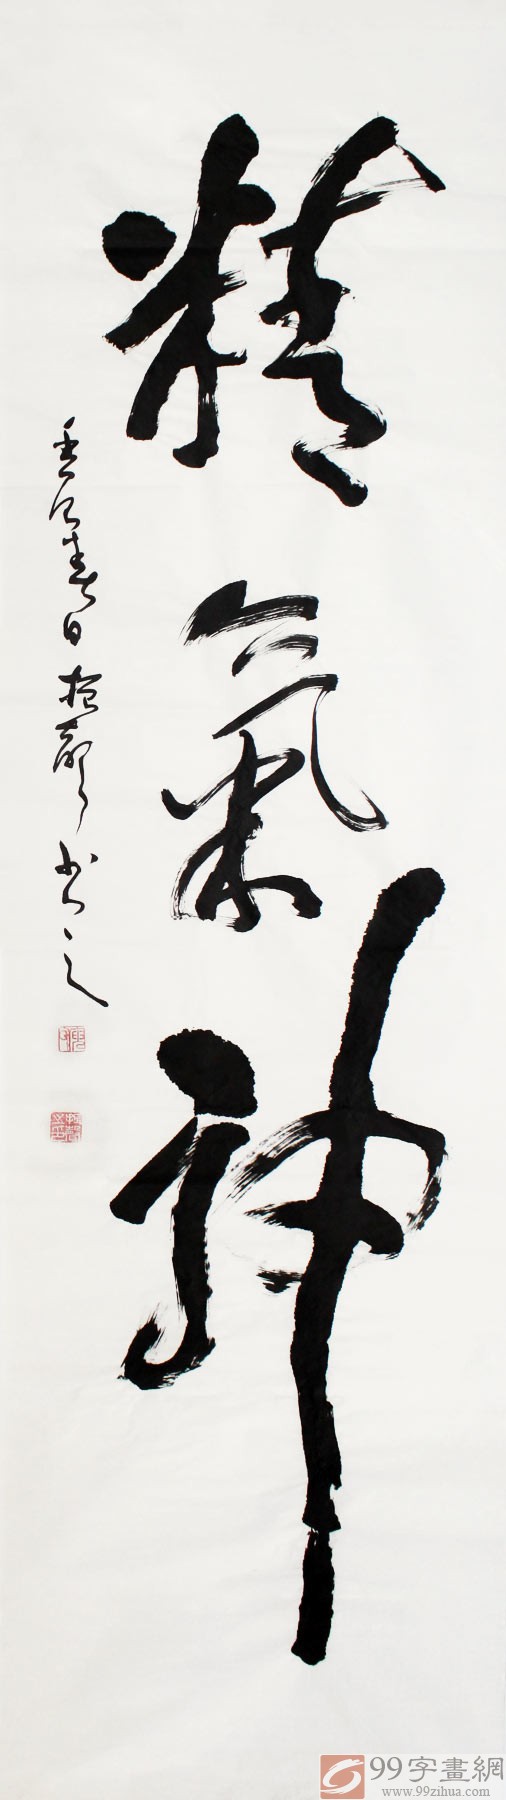 精氣神
春日 書之
99字畫網
www.99zihua.com